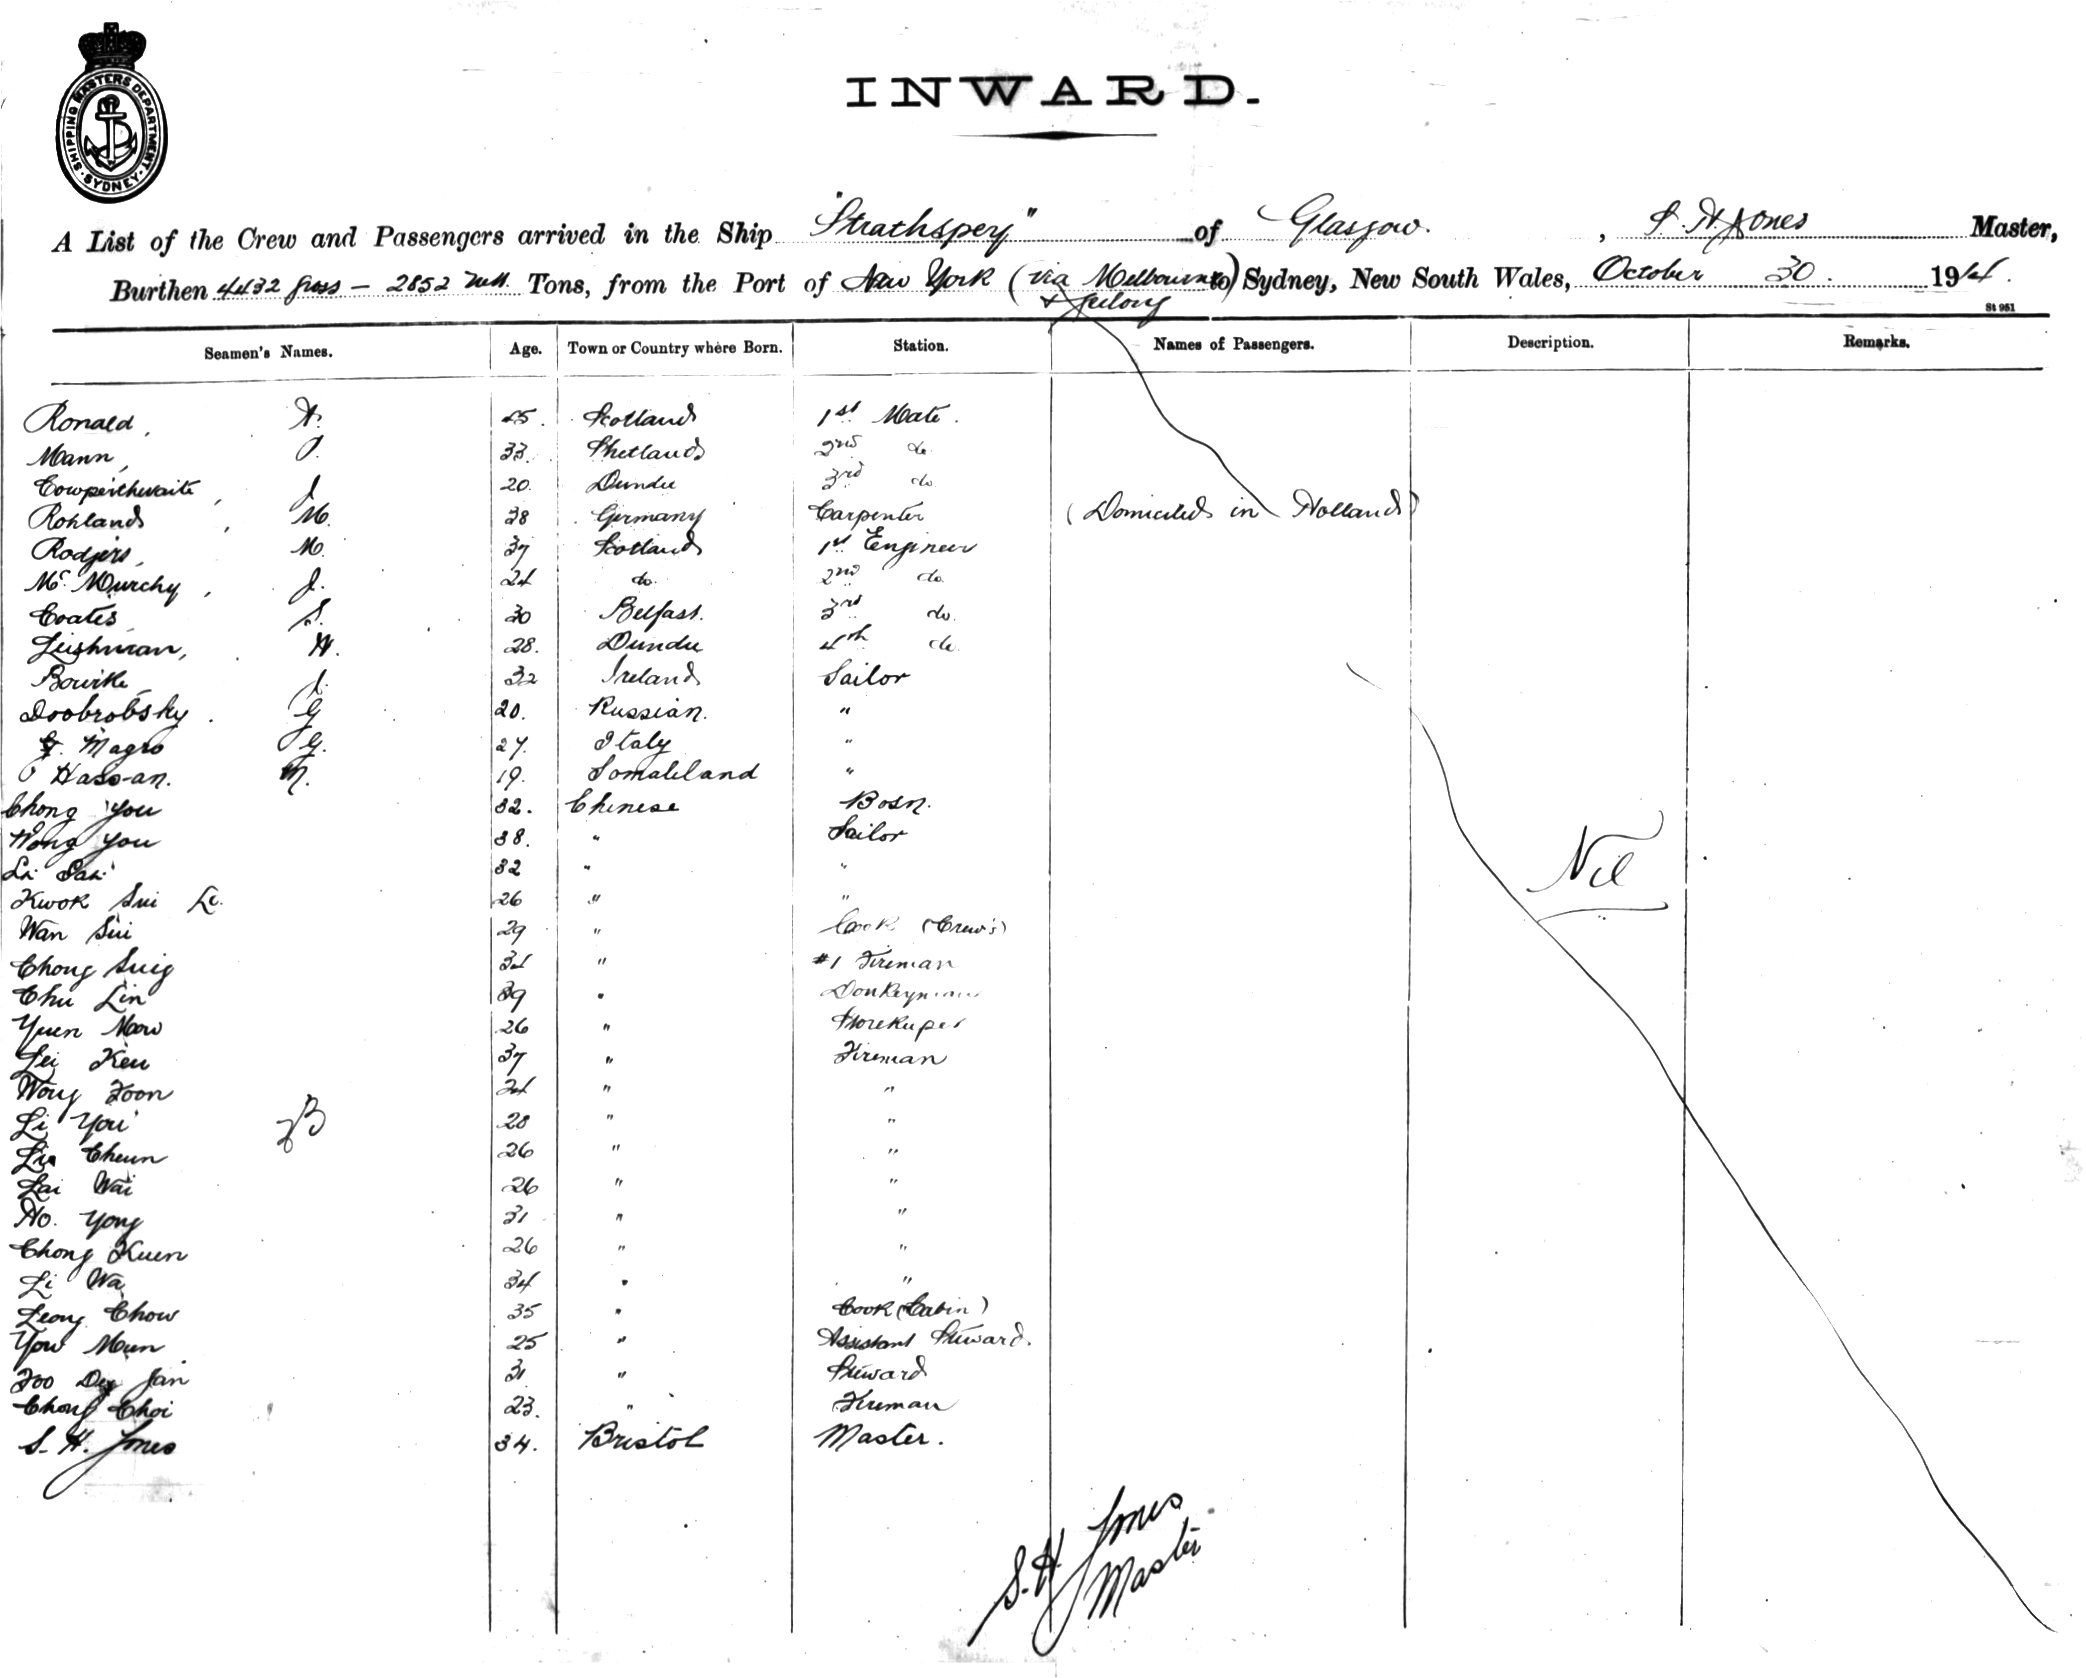 SHIPPING MASTERS DEPARTMENT
SYDNEY
INWARD.
A List of the Crew and Passengers arrived in the Ship "Strathspey" of Glasgow. , S. H. Jones Master,
Burthen 4432 gross - 2852 nett. Tons, from the Port of New York (via Melbourne to) Sydney, New South Wales, October 30. 1914.
& Geelong
St 951
Seamen's Names. Age. Town or Country where Born. Station. Names of Passengers. Description. Remarks.
Ronald, 25. Scotland 1st Mate.
Mann, 33. Shetland 2nd do
Cowperthwaite, J 20. Dundee 3rd do
Rohland, M. 38 Germany Carpenter (Domiciled in Holland)
Rodgers, M. 37 Scotland 1st Engineer
McMurchy, J. 24 do. 2nd do.
Coates, S. 30 Belfast. 3rd do.
Leishman, H. 28. Dundee 4th do
Bourke, J. 32 Ireland Sailor
Doobrobsky. G 20. Russian. "
Magro G. 27. Italy "
Hass-an. M. 19. Somaliland "
Chong You 32. Chinese Bosn.
Wong You 38. " Sailor
Li 32 " "
Kwok Sui Li. 26 " "
Nil
Wan Sui 29 " Cook (Crew's)
Chong Suig 34 " #1 Fireman
Chu Lin 39 " Donkeyman
Yuen Mow 26 " Storekeeper
Lei Keu 37 " Fireman
Wong Foon 24 " "
Li You 28 " "
Cheun 26 " "
Lai Wai 26 " "
Ho. Yong 31 " "
Chong Kuen 26 " "
Li Wa 34 " "
Leong Chow 35 " Cook (Cabin)
You Mun 25 " Assistant Steward.
Foo Dey Jan 31 " Steward
Chong Choi 23. " Fireman
S. H. Jones 34. Bristol Master.
S. H. Jones
Master